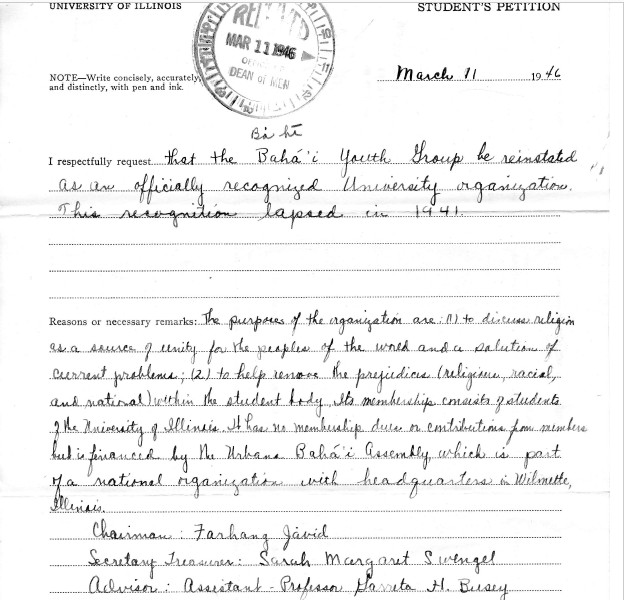 UNIVERSITY OF ILLINOIS
STUDENT'S PETITION
MAR 11 1946
DEAN of MEN
NOTE—Write concisely, accurately,
and distinctly, with pen and ink.
March 11 1946
I respectfully request that the Bahá'i Youth Group be reinstated
as an officially recognized University organization.
This recognition lapsed in 1941.
Reasons or necessary remarks: The purposes of the organization are: (1) to discuss religion
as a source of unity for the peoples of the world and a solution of
current problems; (2) to help remove the prejudices (religious, racial,
and national) within the student body. Its membership consists of students
of the University of Illinois. It has no membership dues or contributions from members
but is financed by the Urbana Bahá'i Assembly, which is part
of a national organization with headquarters in Wilmette,
Illinois.
Chairman: Farhang Jávid
Secretary Treasurer: Sarah Margaret Swengel
Advisor: Assistant-Professor Garreta H. Busey